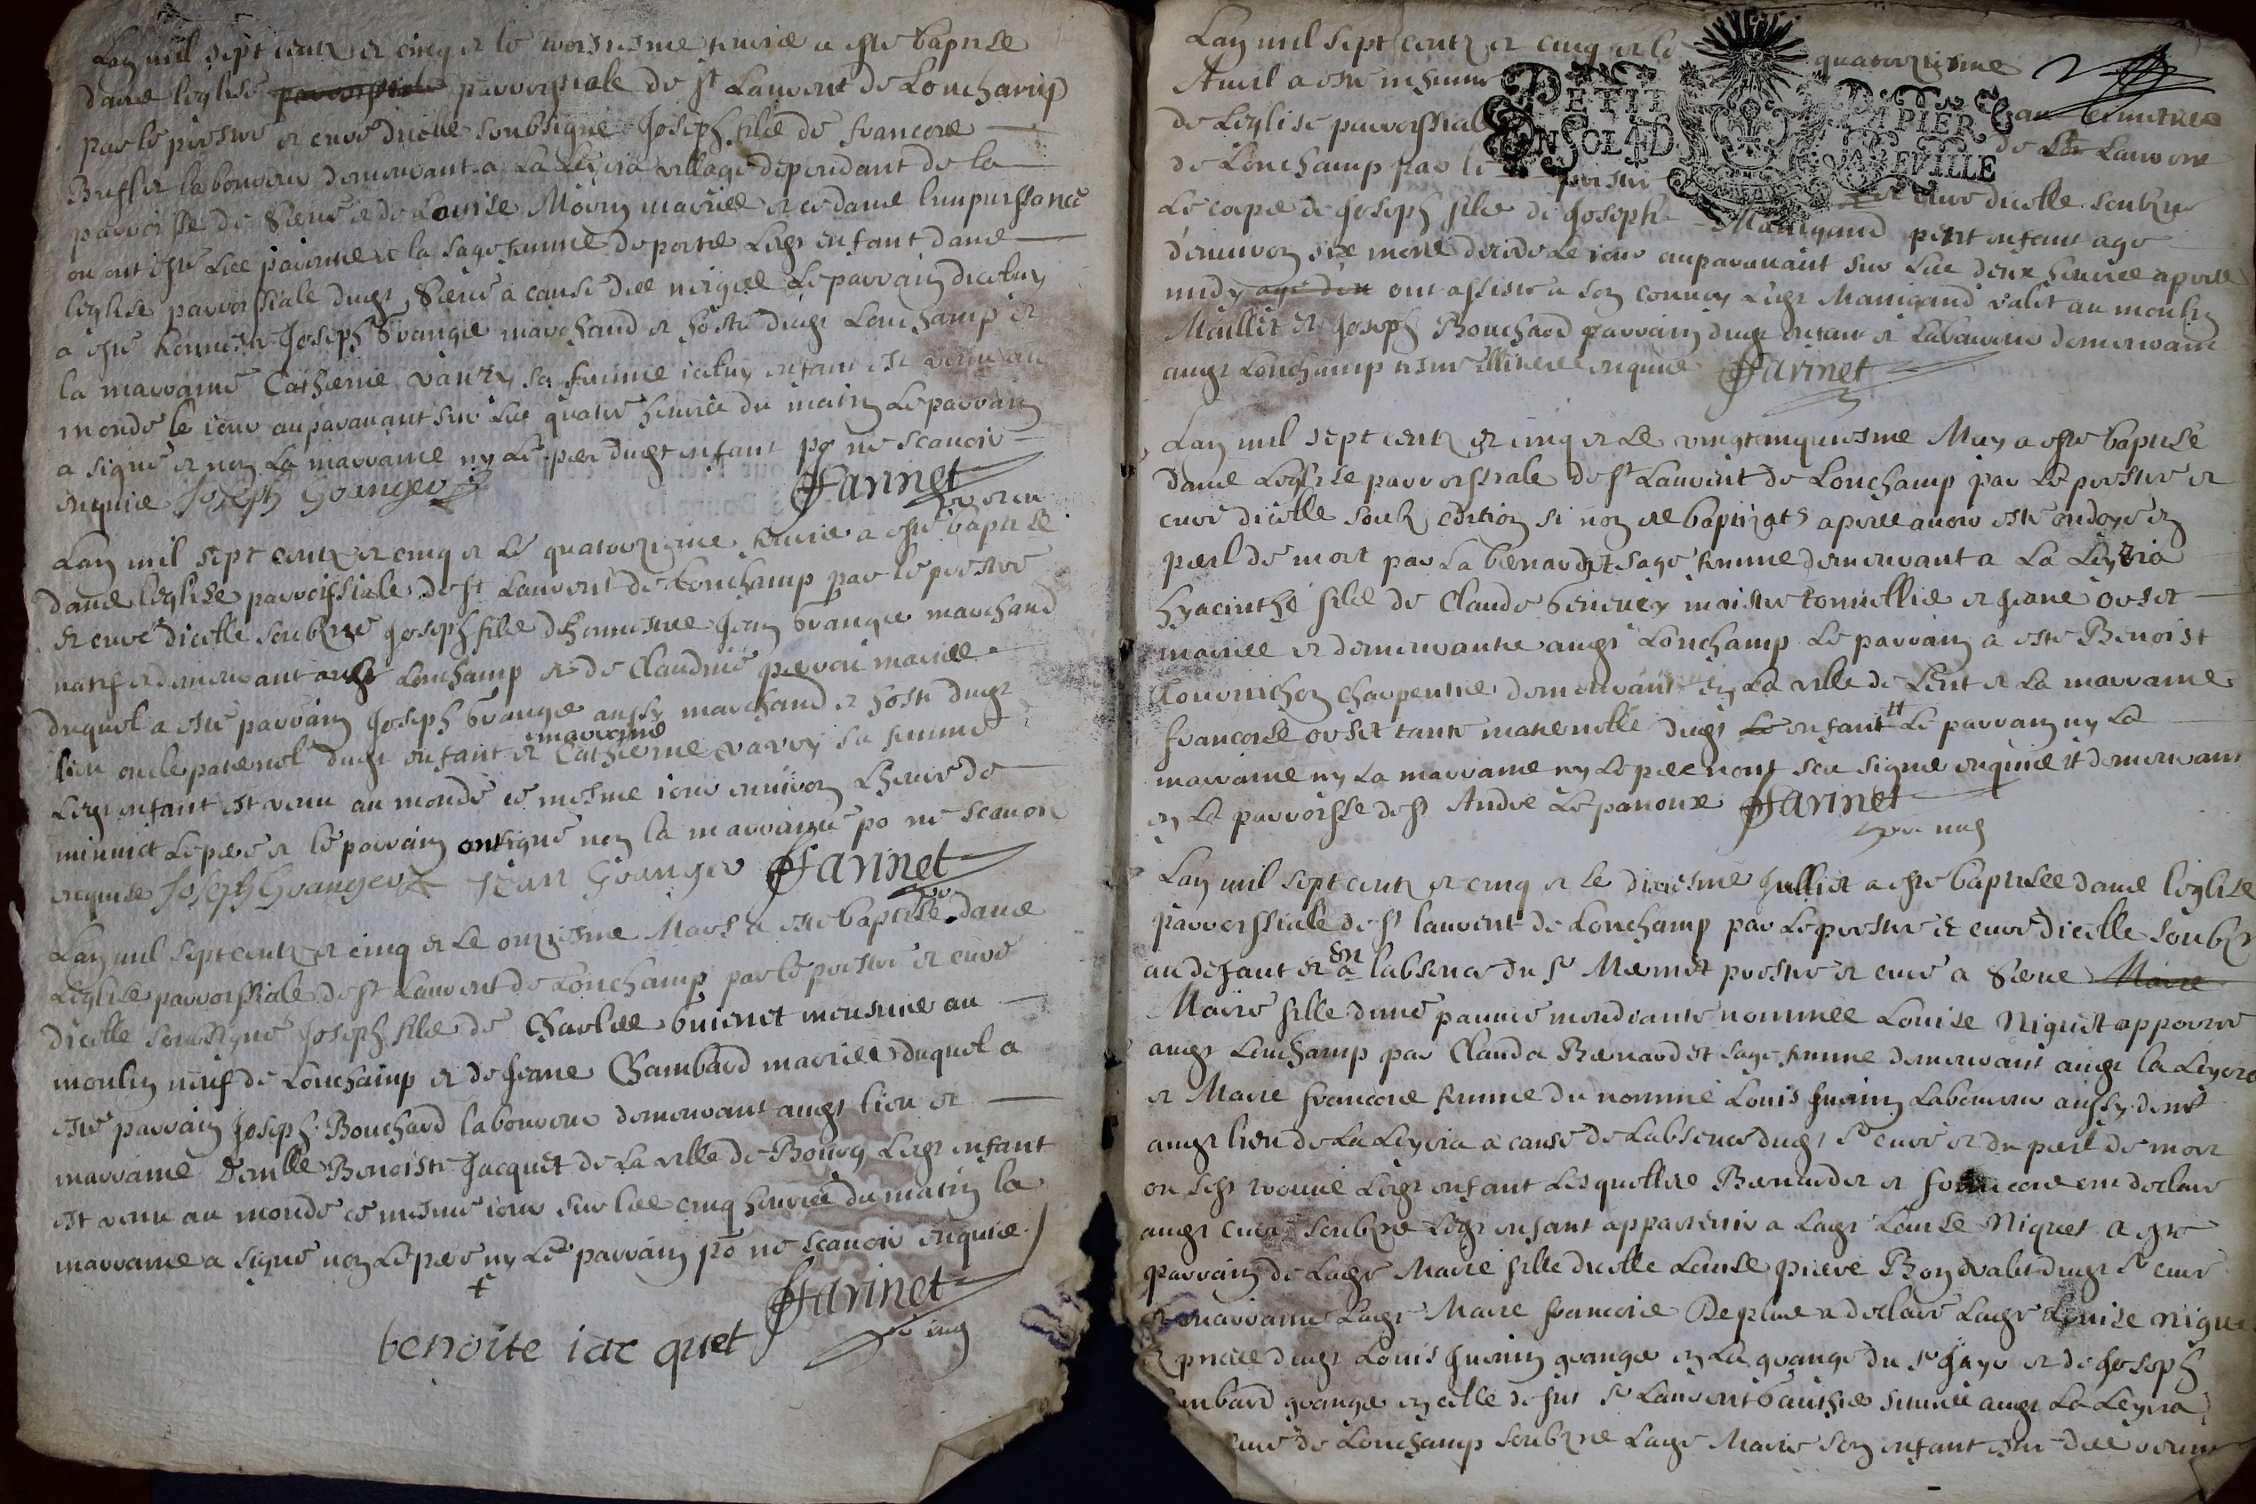 Lan mil sept centz et cinq et le troisiesme feurier a esté baptisé
dans leglise parroissiale parroissiale de st Laurent de Lonchamp
par le prestre et curé dicelle soubsigné Joseph fils de francois
laboureur demeurant a La Leyria village dependant de la
parroisse de Seruë et de Louise Morin mariés et ce dans limpuissance
ou ont esté les parents et la sage femme de porter ledit enfant dans
leglise parroissiale dudit Seruë a cause des neiges Le parrain diceluy
a esté honneste Joseph Grangier marchand et hoste dudit Lonchamp et
la marraine Catherine sa femme iceluy enfant est venu au
monde le iour auparauant sur les quatre heures du matin Le parrain
a signé et non La marraine ny Le pere dudit enfant po ne scauoir
enquis Joseph Granger Farinet
Lan mil sept centz et cinq et Le quatorziesme feurier a esté baptisé
dans leglise parroissiale de st Laurent de Lonchamp par le prestre
et curé dicelle soubzné Joseph fils dhonnestre Jean Grangier marchand
natif et demeurant audit Lonchamp et de Claudine mariés
duquel a esté parrain Joseph Grangier aussy marchand et hoste dudit
lieu oncle paternel dudit enfant et marraine Catherine sa femme
Ledit enfant est venu au monde ce mesme iour enuiron Lheure de
minuict Le pere et le parrain ont signé non la marraine po ne scauoir
enquise Joseph Granger Jean Granger Farinet
Lan mil sept centz et cinq et Le onziesme Mars a esté baptisé dans
Leglise parroissiale de st Laurent de Lonchamp par le prestre et curé
dicelle soubsigné Joseph fils de Charles Guienet meusnier au
moulin neuf de Lonchamp et de Jeane Chambard mariés duquel a
esté parrain Joseph Bouchard laboureur demeurant audit lieu et
marraine Demlle Benoiste Jacquet de La ville de Bourg Ledit enfant
est venu au monde ce mesme iour sur les cinq heures du matin la
marraine a signé non Le pere ny Le parrain po ne scauoir enquis
Farinet
benoite iac quet
Lan mil sept centz et cinq et le quatorziesme
Auril a esté inhumé dans le cimetiere
de Leglise parroissiale de st Laurent
de Lonchamp par le prestre et curé dicelle soubzné
Le corps de Joseph fils de Joseph Manigand petit enfant agé
denuiron six mois decedé le iour auparauant sur les deux heures apres
midy agé den ont assisté a son conuoy Ledit Manigand valet au moulin
Maillet et Joseph Bouchard parrain dudit enfant et Laboureur demeurant
audit Lonchamp enquis Farinet
PETIT PAPIER
EN SOLD VA FEVILLE
Lan mil sept centz et cinq et Le vingtcinquiesme May a esté baptisé
dans Leglise parroissiale de st Laurent de Lonchamp par Le prestre et
curé dicelle soubz condition si non es baptizats apres auoir esté ondoyé en
peril de mort par La Benardet sage femme demeurant a La Leyria
hyacinthe fils de Claude maistre tonnellier et Jeane orset
mariés et demeurants audit Lonchamp Le parrain a esté Benoist
Cournichon charpentier demeurant en La ville de Lent et La marraine
francoise orset tante maternelle dudit Le enfant # Le parrain ny La
marraine ny La marraine ny Le pere nont sceu signer enquis # demeurant
en La parroisse de st André Le panoux Farinet
Lan mil sept centz et cinq et Le dixiesme Julliet a esté baptisée dans leglise
parroissiale de st laurent de Lonchamp par Le prestre et curé dicelle soubzné
au defaut et en a labsence du sr Mermet prestre et curé a Serue Marie
Marie fille dune pauure mendiante nommée Louise Niquet apportée
audit Lonchamp par Clauda Benardet sage femme demeurant audit la Leyria
et Marie francoise femme du nommé Louis Guerin Laboureur aussy demt
audit lieu de La Leyria a cause de Labsence dudit sr curé et du peril de mort
ou sest trouué Ledit enfant Lesquelles Benardet et francoise ont declaré
audit curé soubzné Ledit enfant appartenir a Ladite Louise Niquet a esté
parrain de Ladite Marie fille dicelle Louise pierre Bon valet dudit sr curé
et marraine Ladite Marie francoise De plus a declaré Ladite Louise Niquet
dudit Louis Guerin granger en La grange du sr Jayr et de Joseph
mbard granger en celle de feu sr Laurent Gauthier située audit La Leyria
curé de Lonchamp soubzné Ladite Marie son enfant estre des oeuures